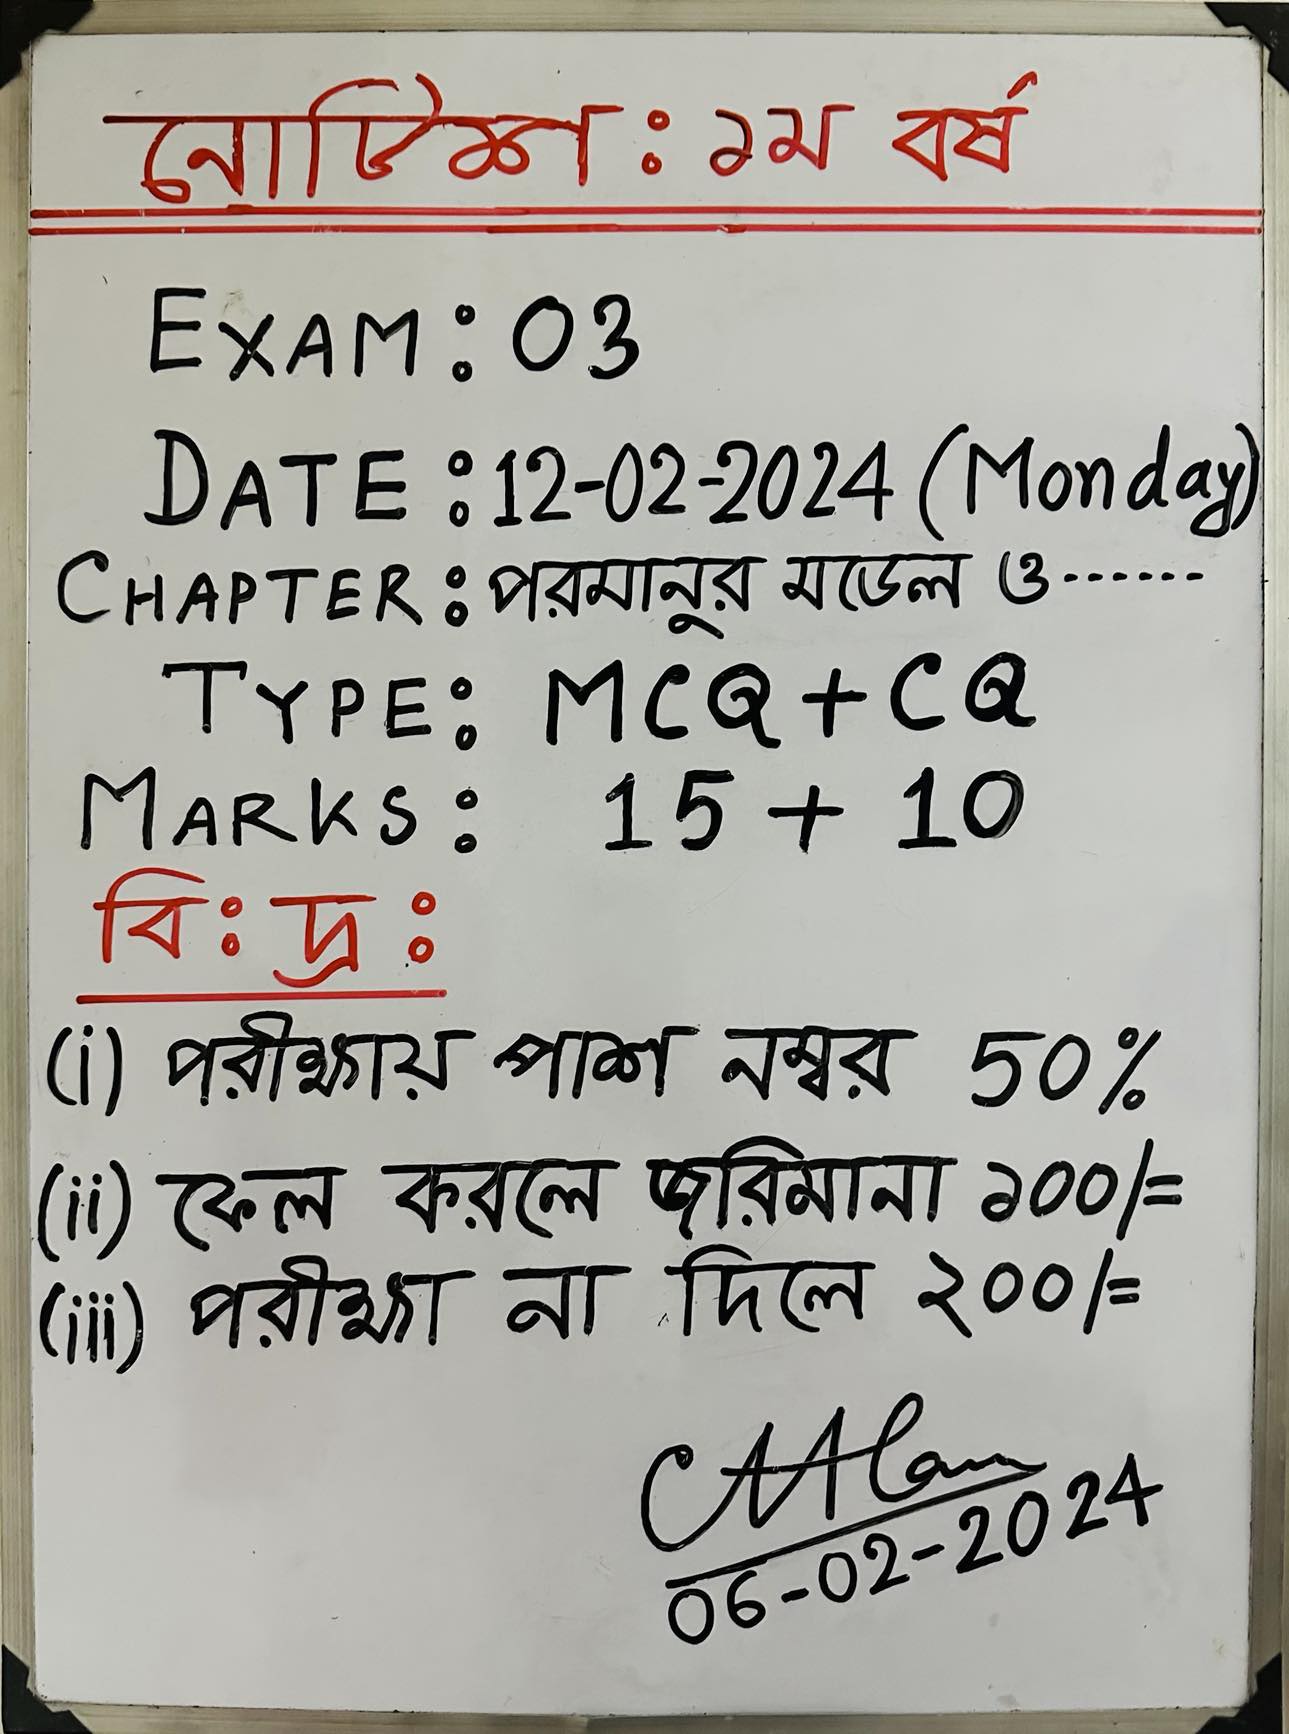 নোটিশ : ১ম বর্ষ
EXAM : 03
DATE : 12-02-2024 (Monday)
CHAPTER : পরমানুর মডেল ও ······
TYPE : MCQ + CQ
MARKS : 15 + 10
বি : দ্র :
(i) পরীক্ষায় পাশ নম্বর 50%
(ii) ফেল করলে জরিমানা ১০০/=
(iii) পরীক্ষা না দিলে ২০০/=
06-02-2024